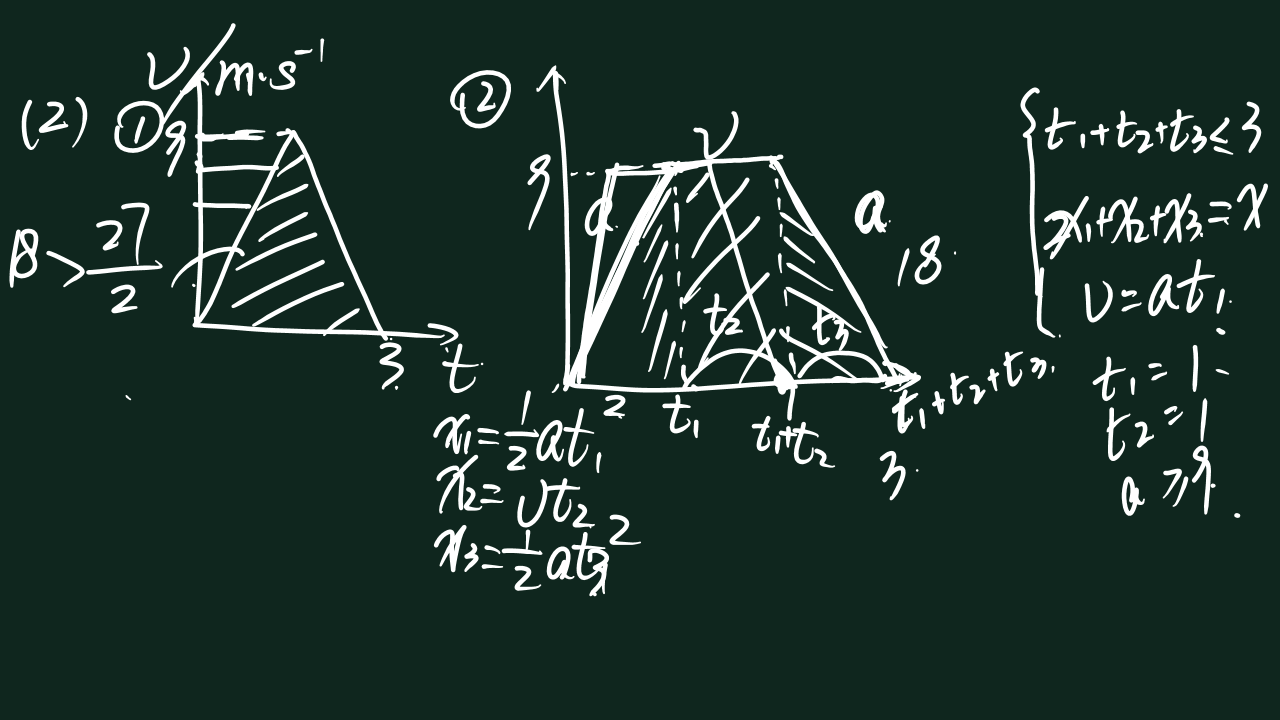 (2) ① υ/m·s⁻¹
9
18 > 27/2
3 t
②
υ
9
a
a
18
t₂
t₃
2 t₁ t₁+t₂ t₁+t₂+t₃
3
x₁=½at₁
x₂=υt₂
x₃=½at₃²
t₁+t₂+t₃≤3
x₁+x₂+x₃=x
υ=at₁
t₁=1
t₂=1
a≥9